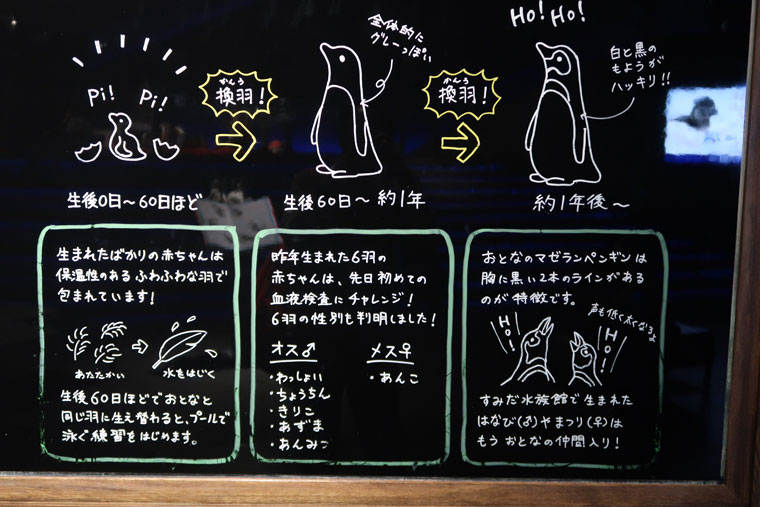 Pi! Pi!
生後0日～60日ほど
かんう
換羽！
全体的に
グレーっぽい
生後60日～約1年
かんう
換羽！
Ho! Ho!
白と黒の
もようが
ハッキリ!!
約1年後～
生まれたばかりの赤ちゃんは
保温性のあるふわふわな羽で
包まれています！
あたたかい
水をはじく
生後60日ほどでおとなと
同じ羽に生え替わると、プールで
泳ぐ練習をはじめます。
昨年生まれた6羽の
赤ちゃんは、先日初めての
血液検査にチャレンジ！
6羽の性別も判明しました！
オス♂
・わっしょい
・ちょうちん
・きりこ
・あずま
・あんみつ
メス♀
・あんこ
おとなのマゼランペンギンは
胸に黒い2本のラインがある
のが特徴です。
Ho!
Ho!
声も低く太くなるよ
すみだ水族館で生まれた
はなび(♂)やまつり(♀)は
もうおとなの仲間入り！